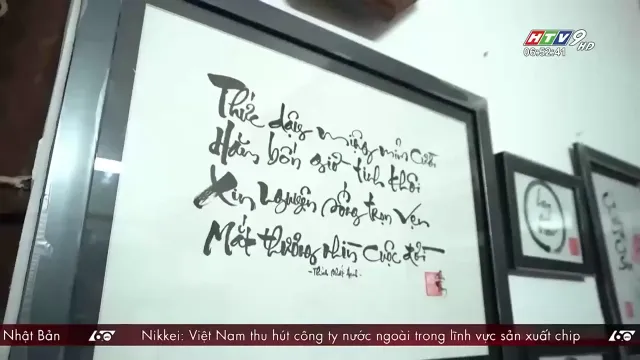 HTV9 HD
06:52:41
Thức dậy miệng mỉm cười
Hăm bốn giờ tinh khôi
Xin nguyện sống trọn vẹn
Mắt thương nhìn cuộc đời
- Thích Nhất Hạnh -
Nhật Bản
60
Nikkei: Việt Nam thu hút công ty nước ngoài trong lĩnh vực sản xuất chip
60